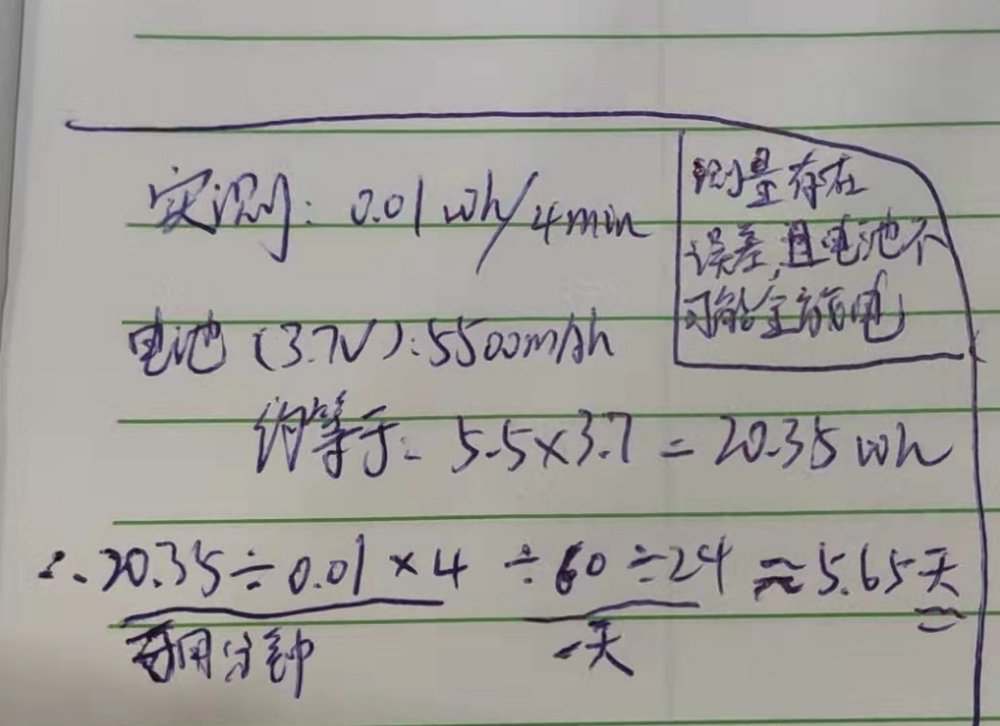 实测: 0.01wh/4min
测量存在
误差,且电池不
可能全部放电
电池 (3.7V):5500mAh
约等于: 5.5×3.7=20.35wh
∴20.35÷0.01×4÷60÷24≈5.65天
可用分钟
一天